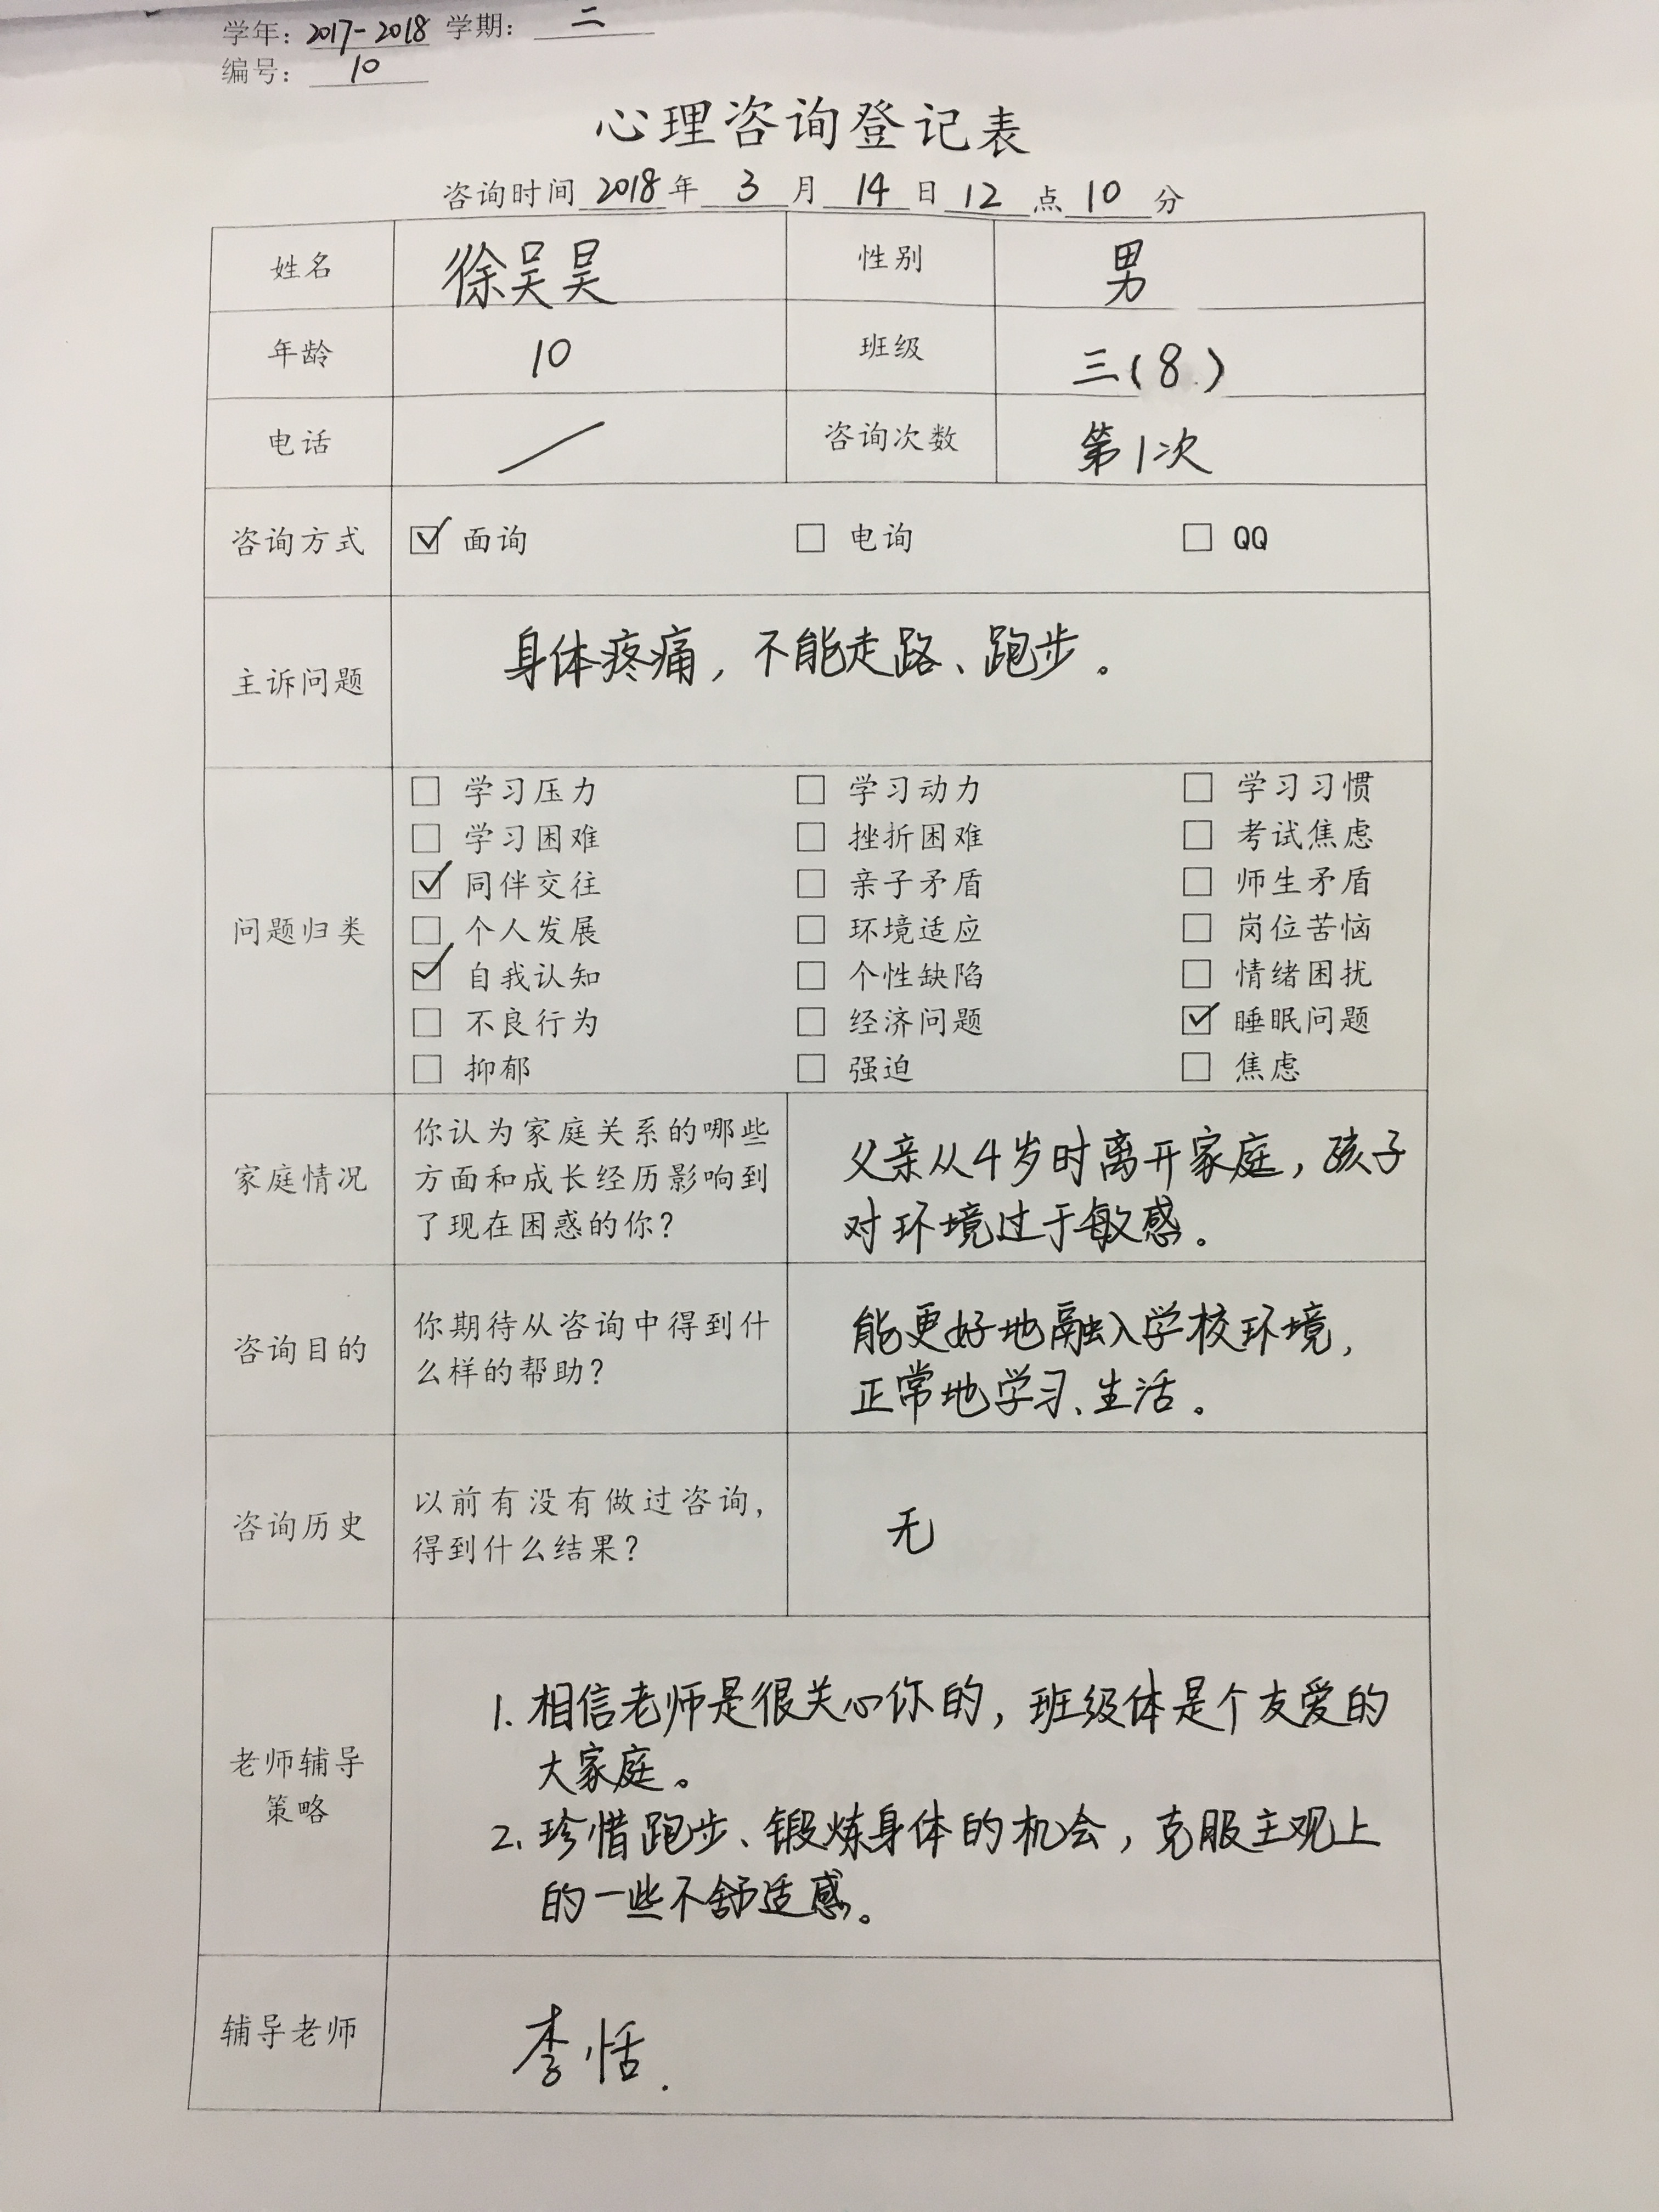 学年：2017-2018 学期：二
编号：10
心理咨询登记表
咨询时间 2018 年 3 月 14 日 12 点 10 分
姓名 徐吴昊 性别 男
年龄 10 班级 三(8)
电话 / 咨询次数 第1次
咨询方式 ☑ 面询 □ 电询 □ QQ
主诉问题 身体疼痛，不能走路、跑步。
□ 学习压力 □ 学习动力 □ 学习习惯
□ 学习困难 □ 挫折困难 □ 考试焦虑
☑ 同伴交往 □ 亲子矛盾 □ 师生矛盾
问题归类 □ 个人发展 □ 环境适应 □ 岗位苦恼
☑ 自我认知 □ 个性缺陷 □ 情绪困扰
□ 不良行为 □ 经济问题 ☑ 睡眠问题
□ 抑郁 □ 强迫 □ 焦虑
家庭情况
你认为家庭关系的哪些
方面和成长经历影响到
了现在困惑的你？
父亲从4岁时离开家庭，孩子
对环境过于敏感。
咨询目的
你期待从咨询中得到什
么样的帮助？
能更好地融入学校环境，
正常地学习、生活。
咨询历史
以前有没有做过咨询，
得到什么结果？
无
老师辅导
策略
1. 相信老师是很关心你的，班级体是个友爱的
大家庭。
2. 珍惜跑步、锻炼身体的机会，克服主观上
的一些不舒适感。
辅导老师 李恬.